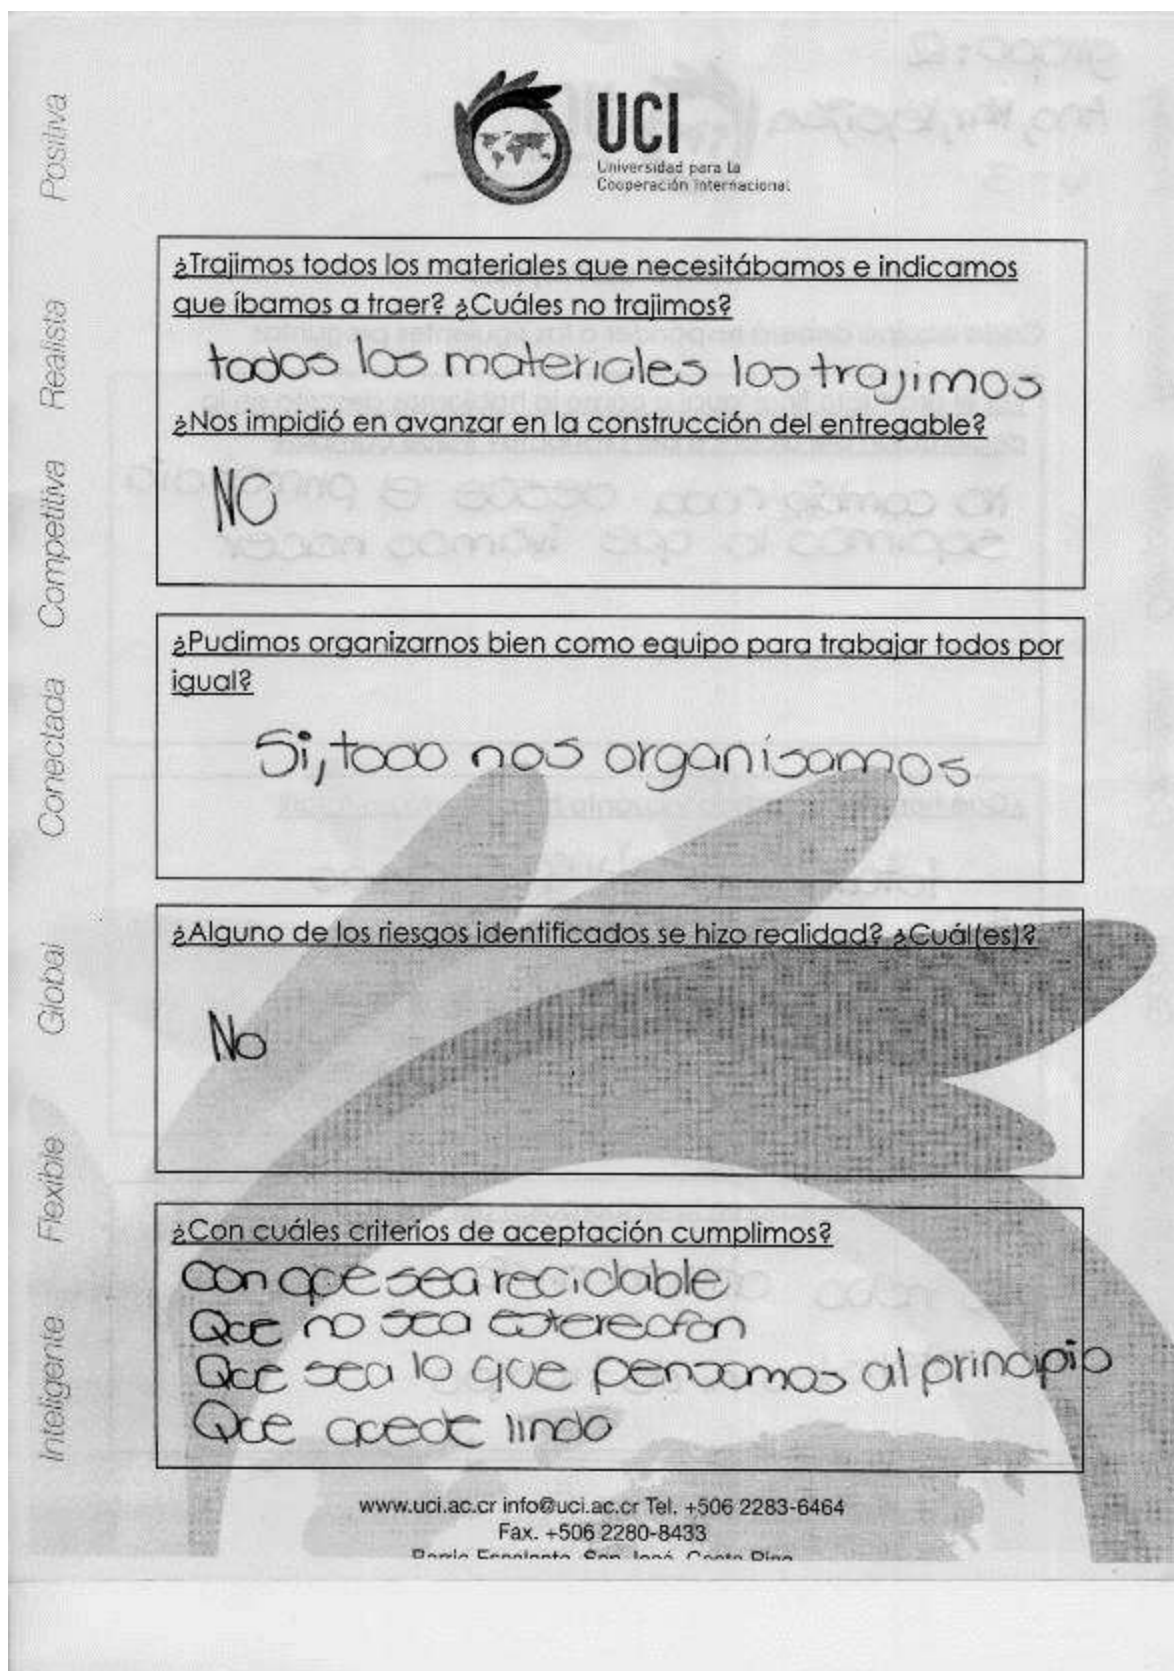 UCI
Universidad para la
Cooperación Internacional
Positiva
Realista
Competitiva
Conectada
Global
Flexible
Inteligente
¿Trajimos todos los materiales que necesitábamos e indicamos
que íbamos a traer? ¿Cuáles no trajimos?
todos los materiales los trajimos
¿Nos impidió en avanzar en la construcción del entregable?
NO
¿Pudimos organizarnos bien como equipo para trabajar todos por
igual?
Si, todo nos organisamos
¿Alguno de los riesgos identificados se hizo realidad? ¿Cuál(es)?
No
¿Con cuáles criterios de aceptación cumplimos?
Con que sea reciclable
Que no sea estereofon
Que sea lo que pensamos al principio
Que quede lindo
www.uci.ac.cr info@uci.ac.cr Tel. +506 2283-6464
Fax. +506 2280-8433
Barrio Escalante, San José, Costa Rica